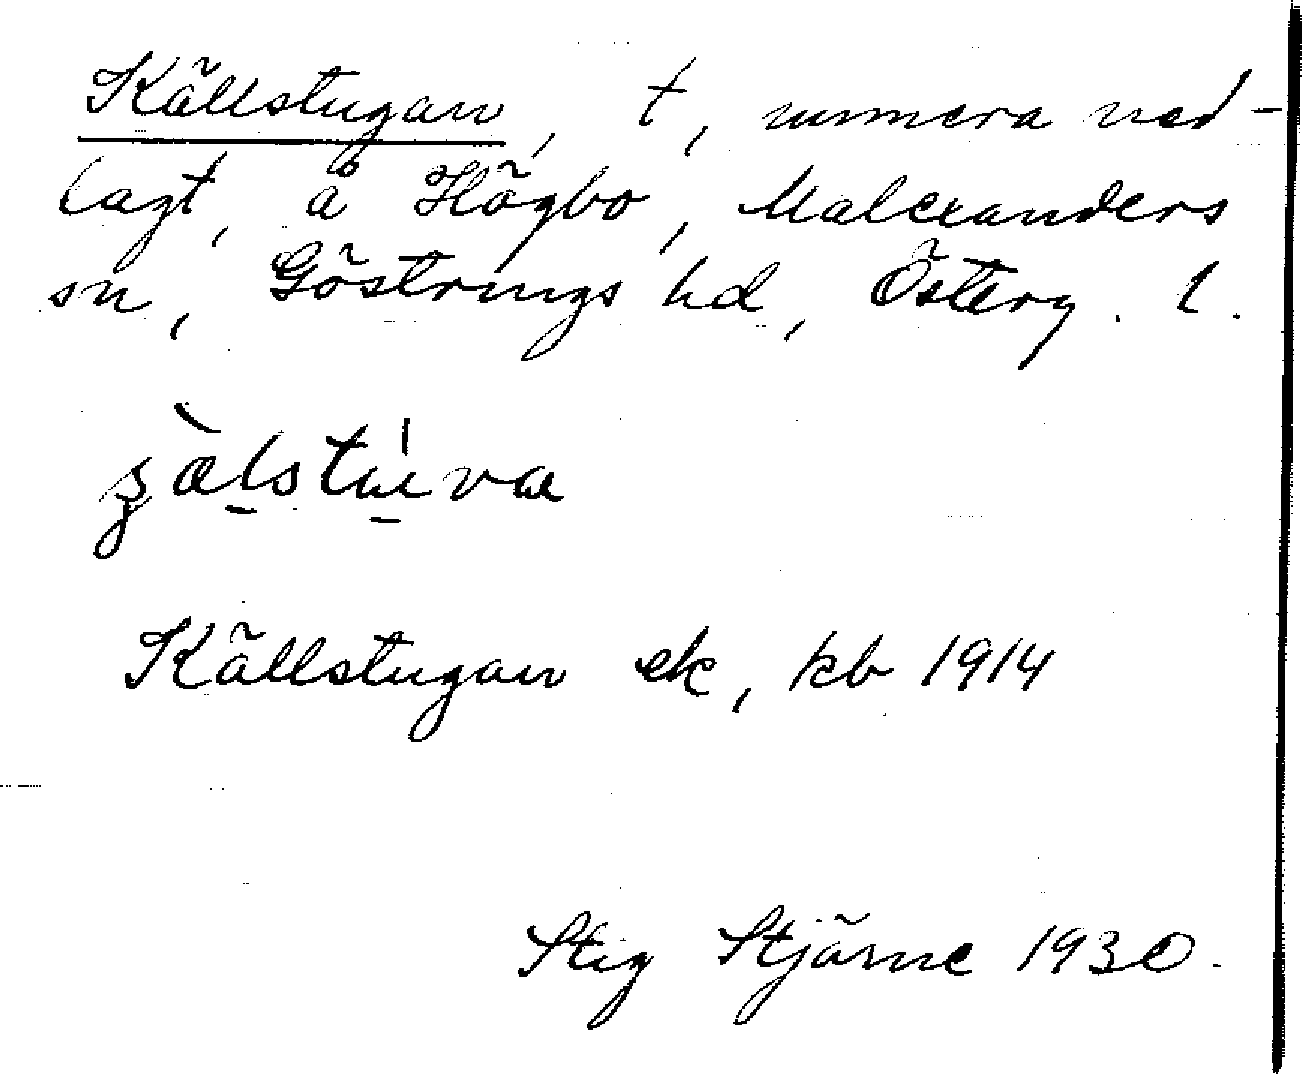 Källstugan, t, numera ned-
lagt, å Högbo, Malexanders
sn, Göstrings hd, Österg. l.
Källstugan ek, kb 1914
Stig Stjärne 1930.